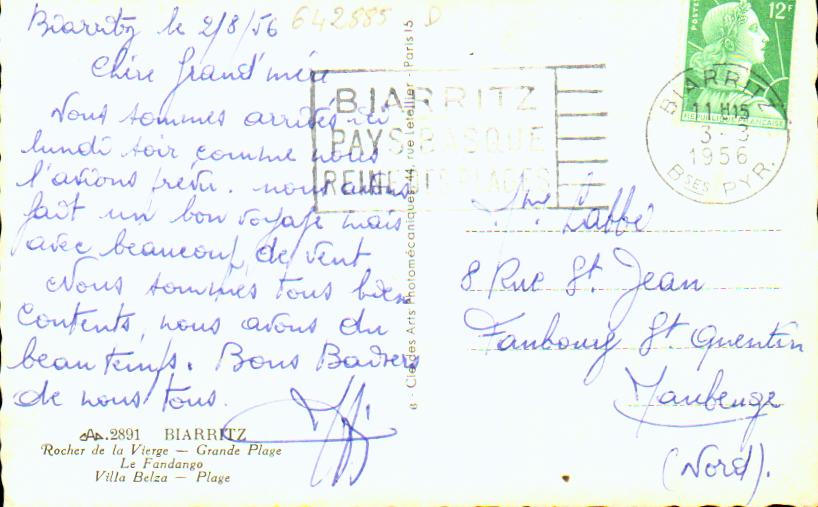 Biarritz le 2/8/56
642885 D
Chère Grand'mère
Nous sommes arrivés ici
lundi soir comme nous
l'avions prévu. nous avons
fait un bon voyage mais
avec beaucoup de vent
Nous sommes tous bien
contents, nous avons du
beau temps. Bons Baisers
de nous tous.
2891 BIARRITZ
Rocher de la Vierge — Grande Plage
Le Fandango
Villa Belza — Plage
6 - Cie des Arts Photomécaniques, 44, rue Letellier - Paris 15
BIARRITZ
PAYS BASQUE
REINE DES PLAGES
POSTES
12F
RÉPUBLIQUE FRANÇAISE
BIARRITZ
11 H15
3 - 8
1956
BSES PYR.
Labbé
8 Rue St. Jean
Faubourg St. Quentin
Maubeuge
(Nord).